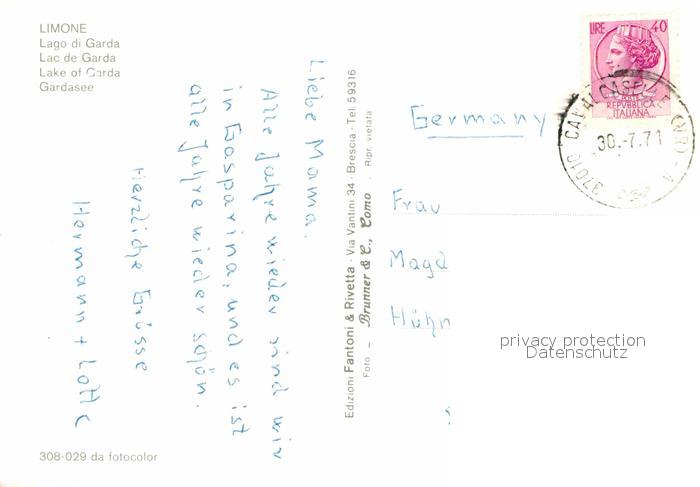 LIMONE
Lago di Garda
Lac de Garda
Lake of Garda
Gardasee
Liebe Mama.
Alle Jahre wieder sind wir
in Gasparina, und es ist
alle Jahre wieder schön.
Herzliche Grüsse
Hermann + Lotte
308-029 da fotocolor
Edizioni Fantoni & Rivetta - Via Vantini 34 - Brescia - Tel. 59316
Foto - Brunner & C., Como - Ripr. vietata
LIRE 40
POSTE
REPVBBLICA
ITALIANA
37010 CAVALCASELLE (VR) - A
30.-7.71
Germany
Frau
Magd
Hühn
privacy protection
Datenschutz